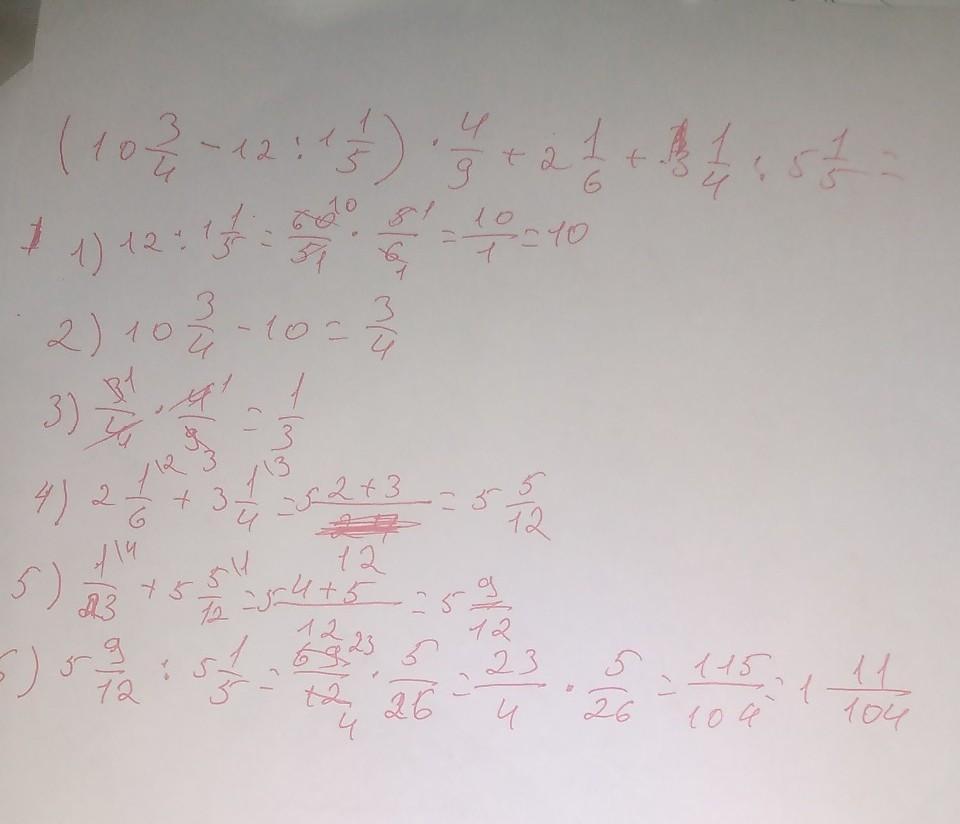 (10 3/4 - 12 : 1 1/5) · 4/9 + 2 1/6 + 3 1/4 : 5 1/5 =
1) 12 : 1 1/5 = 60 10/5 1 · 5 1/6 1 = 10/1 = 10
2) 10 3/4 - 10 = 3/4
3) 3 1/4 1 · 4 1/9 3 = 1/3
4) 2 1\2/6 + 3 1\3/4 = 5 2+3/12 = 5 5/12
5) 1\4/3 + 5 5\1/12 = 5 4+5/12 = 5 9/12
6) 5 9/12 : 5 1/5 = 69 23/12 4 · 5/26 = 23/4 · 5/26 = 115/104 = 1 11/104